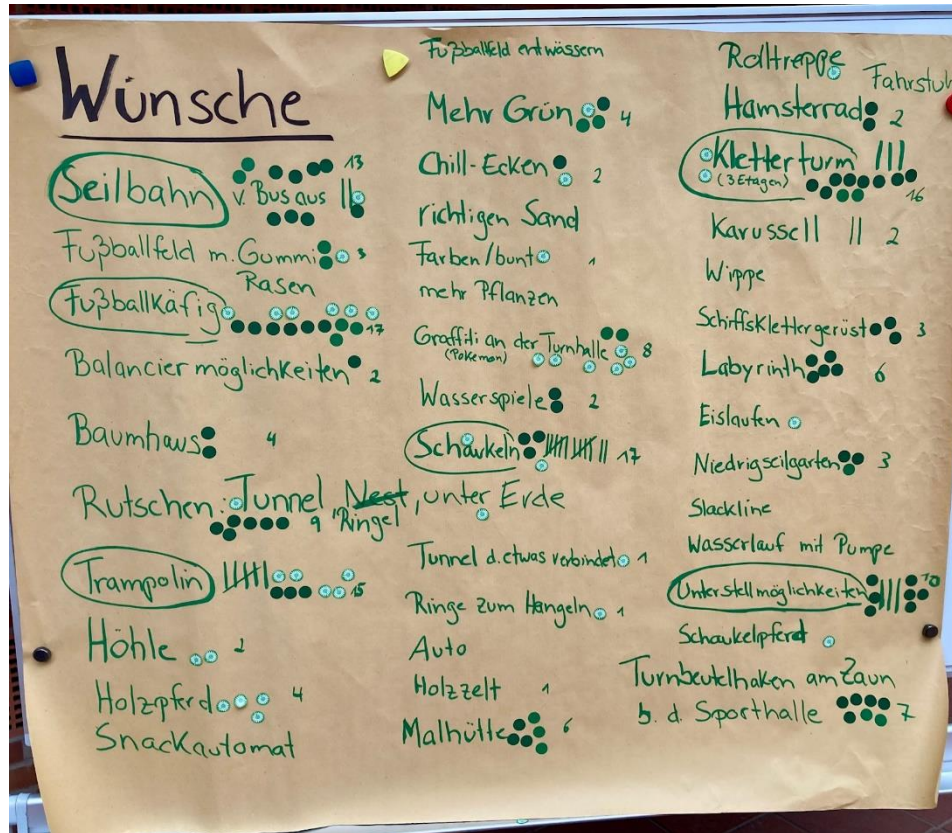 Wünsche
Seilbahn v. Bus aus || 13
Fußballfeld m. Gummi 3
Rasen
Fußballkäfig 17
Balancier möglichkeiten 2
Baumhaus 4
Rutschen: Tunnel, Nest, unter Erde
9 Ringel
Trampolin 15
Höhle 2
Holzpferd 4
Snackautomat
Fußballfeld entwässern
Mehr Grün 4
Chill-Ecken 2
richtigen Sand
Farben/bunt 1
mehr Pflanzen
Graffiti an der Turnhalle 8
(Pokemon)
Wasserspiele 2
Schaukeln 17
Tunnel d. etwas verbindet 1
Ringe zum Hangeln 1
Auto
Holzzelt 1
Malhütte 6
Rolltreppe
Fahrstuh
Hamsterrad 2
Kletterturm |||
(3 Etagen) 16
Karussell || 2
Wippe
Schiffsklettergerüst 3
Labyrinth 6
Eislaufen
Niedrigseilgarten 3
Slackline
Wasserlauf mit Pumpe
Unterstellmöglichkeiten ||| 10
Schaukelpferd
Turnbeutelhaken am Zaun
b. d. Sporthalle 7